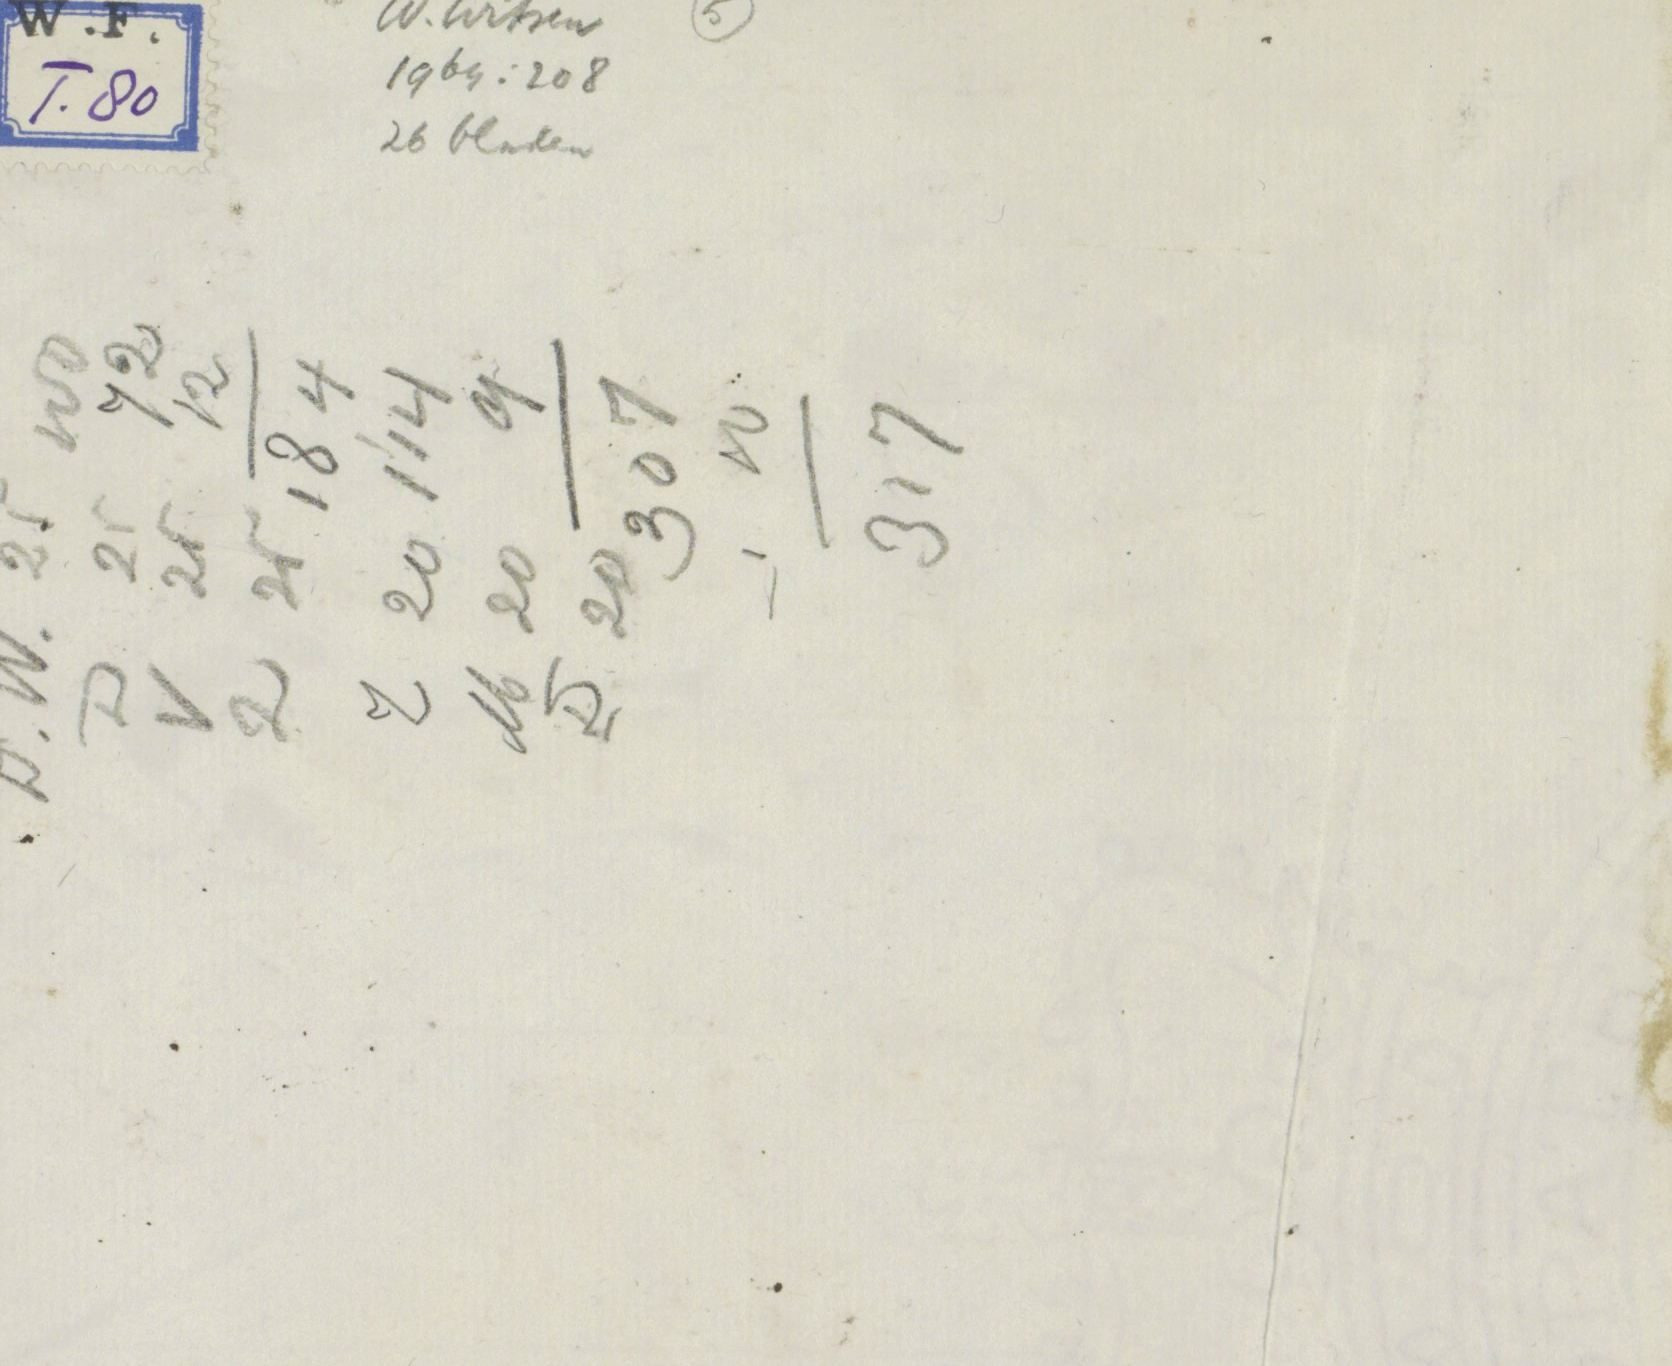 W.F.
T. 80
W. Witsen
5
1969:208
26 bladen
100
72
12
184
114
9
307
10
317
D. W. 25
D 25
V 25
25
Z 20
M 20
20